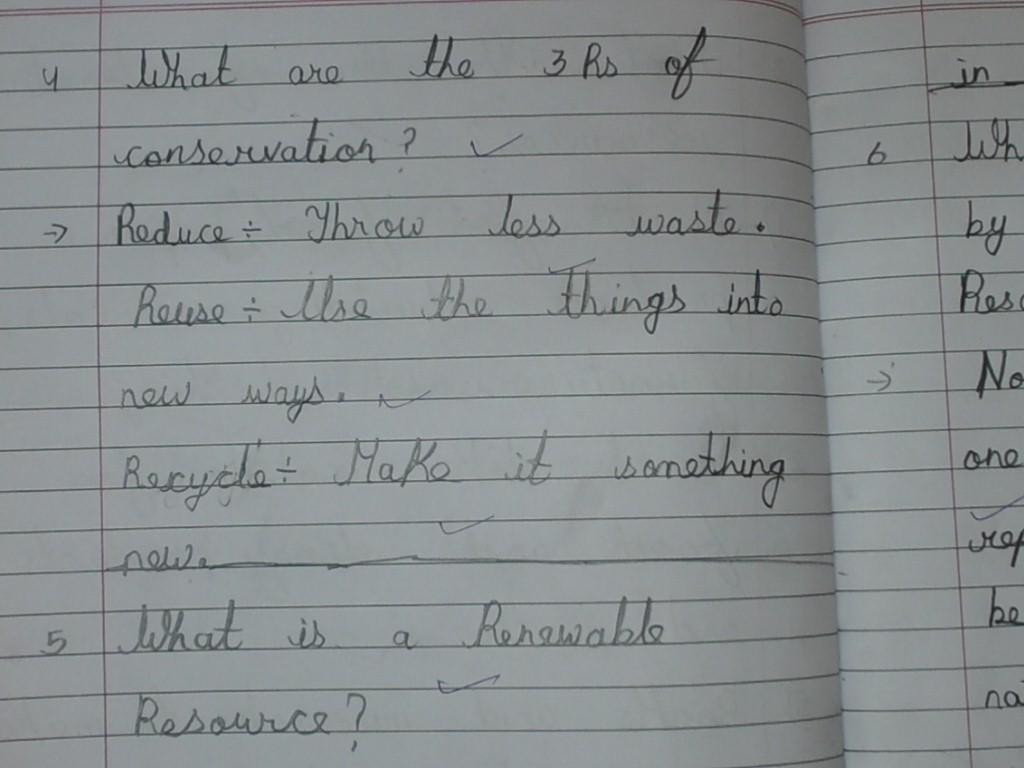 4 What are the 3 Rs of
conservation?
→ Reduce ÷ Throw less waste.
Reuse ÷ Use the things into
new ways.
Recycle ÷ Make it something
new.
5 What is a Renewable
Resource?
in
6 Wh
by
Reso
→ No
one
rep
be
na